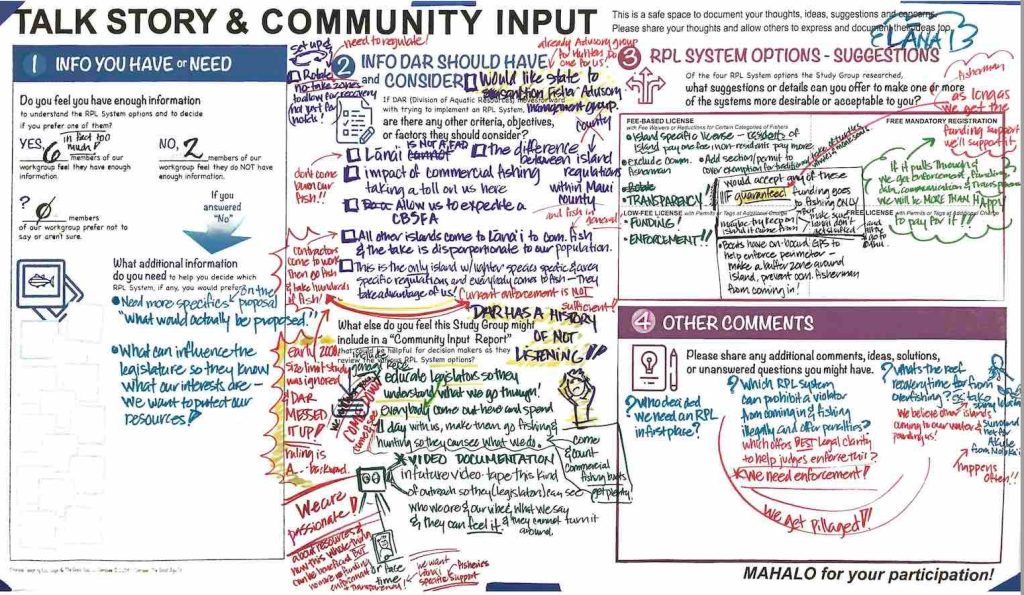 TALK STORY & COMMUNITY INPUT
This is a safe space to document your thoughts, ideas, suggestions and concerns.
Please share your thoughts and allow others to express and document their ideas too.
LĀNAʻI 3
1 INFO YOU HAVE or NEED
Do you feel you have enough information
to understand the RPL System options and to decide
if you prefer one of them?
YES, 6 members of our
in fact too much!
workgroup feel they have enough
information.
NO, 2 members of our
workgroup feel they do NOT have
enough information.
? 0 members
of our workgroup prefer not to
say or aren't sure.
If you
answered
"No"
What additional information
do you need to help you decide which
RPL System, if any, you would prefer?
• Need more specifics on the proposal
"What would actually be proposed."
• What can influence the
legislature so they know
what our interests are -
we want to protect our
resources!
set up &
Rotate
no-take zones
to allow for recovery
not just for
need to regulate!
2 INFO DAR SHOULD HAVE
and CONSIDER
already Advisory group
one for us!
Would like state to
Fisher Advisory
management group.
county
If DAR (Division of Aquatic Resources) moves forward
with trying to implement an RPL system,
are there any other criteria, objectives,
or factors they should consider?
Lānaʻi IS NOT A FAD
the difference
between island
regulations
within Maui
county
and fish in general
impact of commercial fishing
taking a toll on us here
don't come
our fish!!
Allow us to expedite a
CBSFA
All other islands come to Lānaʻi to com. fish
& the take is disproportionate to our population.
This is the only island w/ lighter species specific & area
specific regulations and everybody comes to fish - They
take advantage of us!
Current enforcement is NOT
sufficient!!
contractors
come to work
then go fish
& take hundreds
of fish!
DAR HAS A HISTORY
OF NOT
LISTENING!!
What else do you feel this Study Group might
include in a "Community Input Report"
that could be helpful for decision makers as they
review the various RPL System options?
early 2000
size limit study
was ignored
& DAR
MESSED
IT UP!
ruling is
A... backward.
educate legislators so they
understand what we go through!
Everybody come out here and spend
all day with us, make them go fishing &
hunting so they can see what we do.
come
& count
commercial
fishing boats
get plenty
* VIDEO DOCUMENTATION
in future video-tape this kind
of outreach so they (legislator) can see
who we are & our vibe, what we say
& they can feel it. & they cannot turn it
around.
We are
passionate!
about resources &
how this whole thing
can be beneficial BUT
no more funding
enforcement
& transparency!
or take
time
we want
Lānaʻi
specific support
fisheries
3 RPL SYSTEM OPTIONS - SUGGESTIONS
Of the four RPL System options the Study Group researched,
what suggestions or details can you offer to make one or more
of the systems more desirable or acceptable to you?
fisherman
as long as
we get the
funding support
we'll support it.
FEE-BASED LICENSE
with Fee Waivers or Reductions for Certain Categories of Fishers
FREE MANDATORY REGISTRATION
• Island specific license - residents of
island pay one fee; non-residents pay more.
• exclude comm.
fisherman
• Add section/permit to
cover exemption for traditional take of turtles
• Rotate
• TRANSPARENCY!
• FUNDING!
• ENFORCEMENT!!
would accept any of these
IIF guaranteed funding goes
to fishing ONLY
maybe to keep on
island it came from?
LOW-FEE LICENSE with Permits or Tags at Additional Charge
FREE LICENSE with Permits or Tags at Additional Charge
• Boats have on-board GPS to
help enforce perimeter -
make a buffer zone around
island, prevent com. fisherman
from coming in!
If it pulls through &
we get enforcement, funding,
data, communication & transparency
We will be MORE THAN HAPPY
to pay for it!!
4 OTHER COMMENTS
Please share any additional comments, ideas, solutions,
or unanswered questions you might have.
? Who decided
we need an RPL
in first place?
? Which RPL system
can prohibit a violator
from coming in & fishing
illegally and offer penalties?
which offers BEST legal clarity
to help judges enforce this?
* We need enforcement!
? What's the reef
recovery time for from
overfishing?
We believe other islands
coming to our water &
pounding us!
Akule
from Molokaʻi
happens
often!!
We get Pillaged!!
MAHALO for your participation!